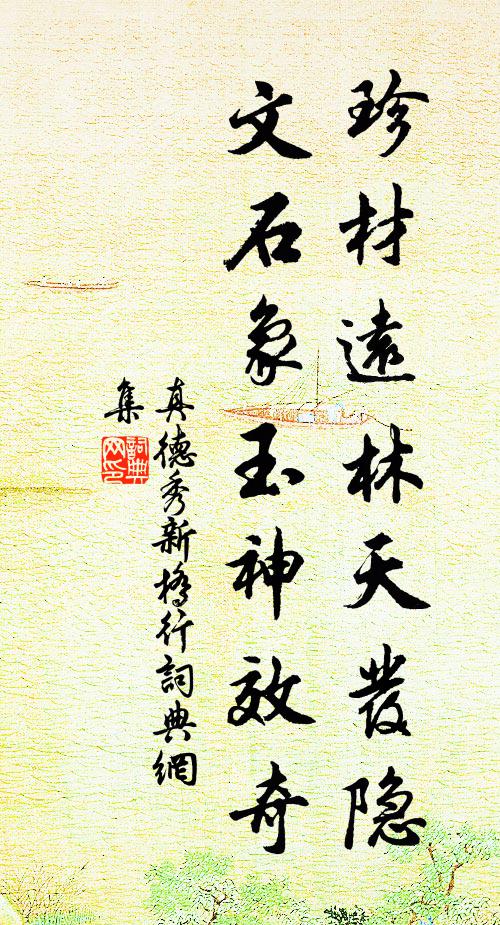 珍材遠林天發隐
文石象玉神效奇
真德秀新橋行詞典網
集
詞典
网印